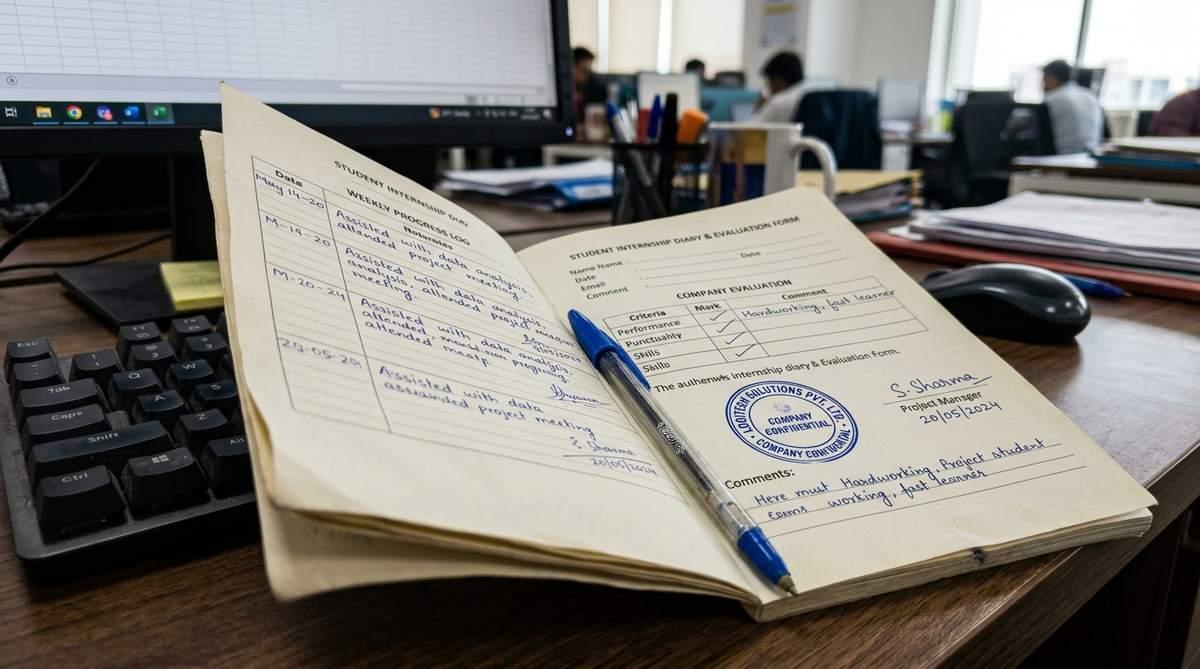 STUDENT INTERNSHIP DIAR
WEEKLY PROGRESS LOG
Date
May 14-20
Assisted with data analysis.
attended project meeting.
M-14-20
Assisted with data analysis,
analysis, attended project
meeting.
M-20-24
Assisted with data analysis,
attended
attended
Assisted with data
project meeting
S. Sharma
20/05/2024
STUDENT INTERNSHIP DIARY & EVALUATION FORM
Name Name
Date
Date
Email
Comment
COMPANY EVALUATION
Criteria Mark Comment
Performance ✓ Hardworking, fast learner
Punctuality ✓
Skills ✓
Skillo
The internship diary & Evaluation Form.
SOLUTIONS PVT. LTD
COMPANY
COMPANY
S. Sharma
Project Manager
20/05/2024
Comments:
Here must Hardworking. Project student
working, fast learner
Esc
Tab
Caps
Shift
Ctrl
Alt
Q
W
A
S
Z
X